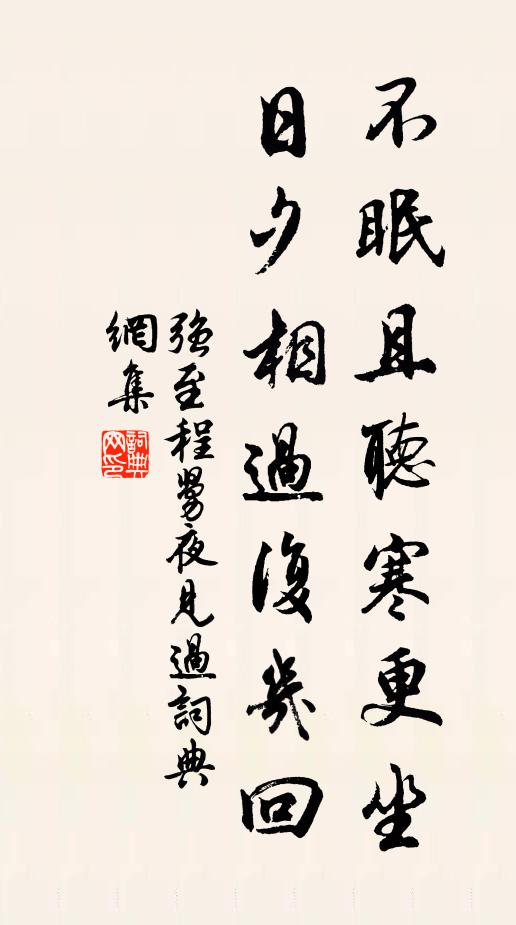 不眠且聽寒更坐
日夕相過復幾回
强至程勞夜見過詞典
網集
詞典網印